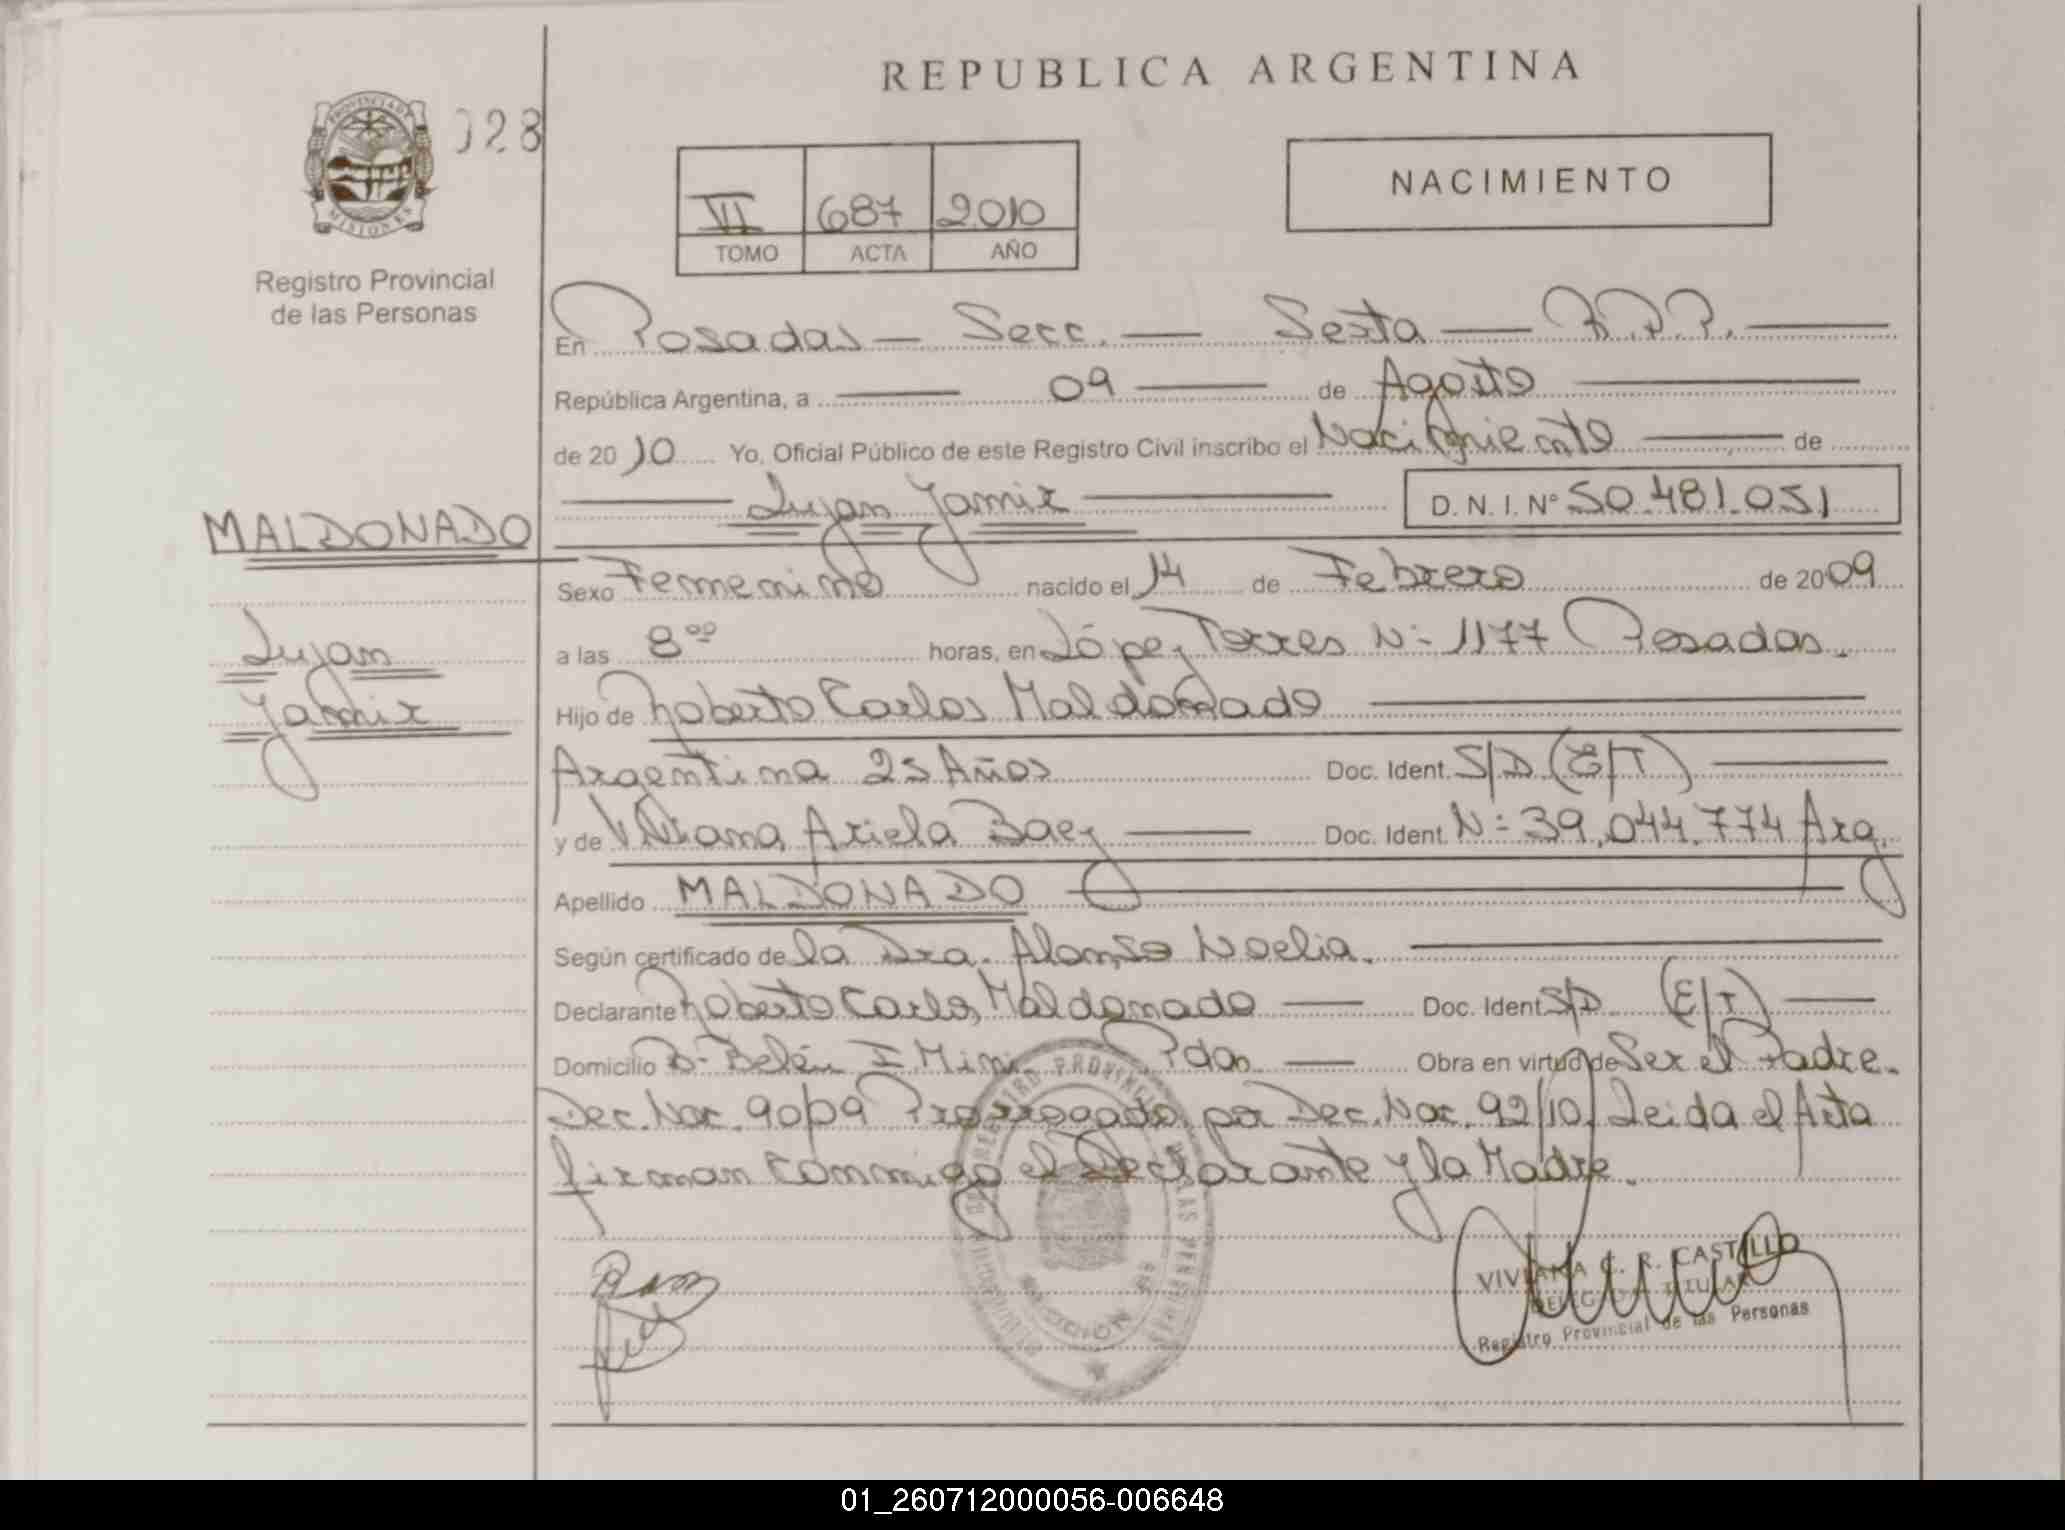 REPUBLICA ARGENTINA
028
PROVINCIA DE
MISIONES
Registro Provincial
de las Personas
VI 687 2010
TOMO ACTA AÑO
NACIMIENTO
En Posadas — Secc. — Sexta — R.P.P. —
República Argentina, a — 09 — de Agosto —
de 2010 Yo, Oficial Público de este Registro Civil inscribo el Nacimiento — de
— Lujan Yamix — D. N. I. Nº 50.481.051
MALDONADO
Lujan
Yamix
Sexo Femenino nacido el 14 de Febrero de 2009
a las 8⁰⁰ horas, en López Torres N= 1177 Posadas.
Hijo de Roberto Carlos Maldonado —
Argentina 25 Años Doc. Ident. S/D (E/T) —
y de Viviana Ariela Baez — Doc. Ident. N= 39.044.774 Arg.
Apellido MALDONADO —
Según certificado de la Dra. Alonso Noelia. —
Declarante Roberto Carlos Maldonado — Doc. Ident S/D (E/T) —
Domicilio B- Belén I Mini Pdas. — Obra en virtud de Ser el Padre.
Dec. Nac. 90/09 Prorrogado por Dec. Nac. 92/10. Leida el Acta
firman conmigo el Declarante y la Madre.
REGISTRO PROVINCIAL DE LAS PERSONAS
VIVIANA C. R. CASTILLO
TITULAR
Registro Provincial de las Personas
01_260712000056-006648